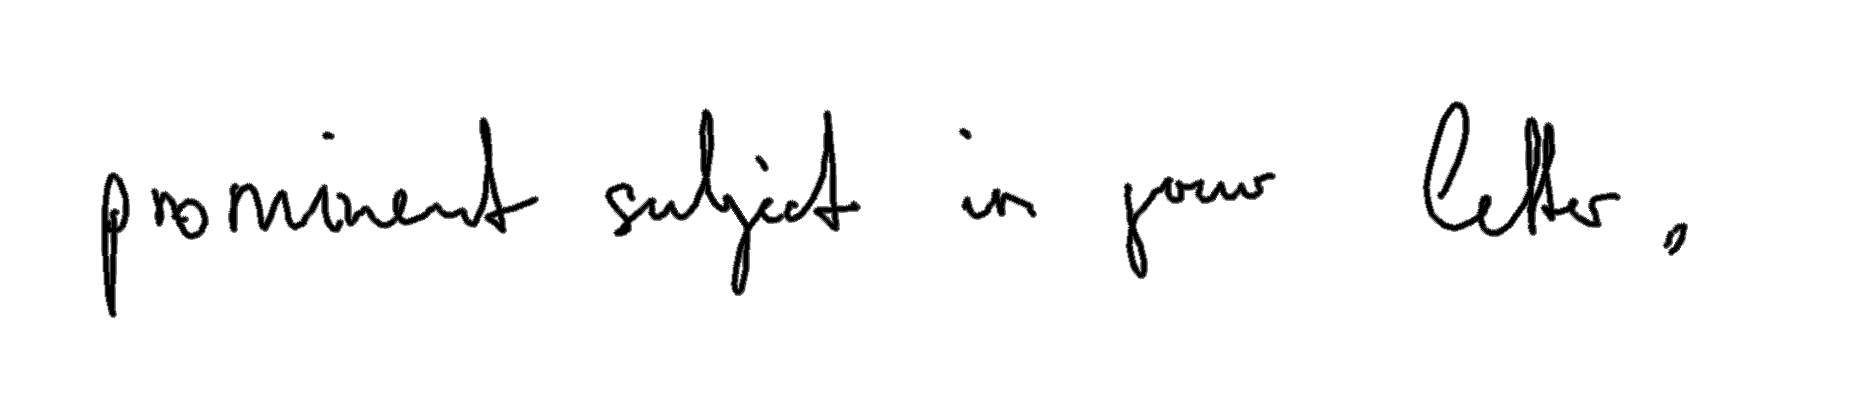 prominent subject in your letter,